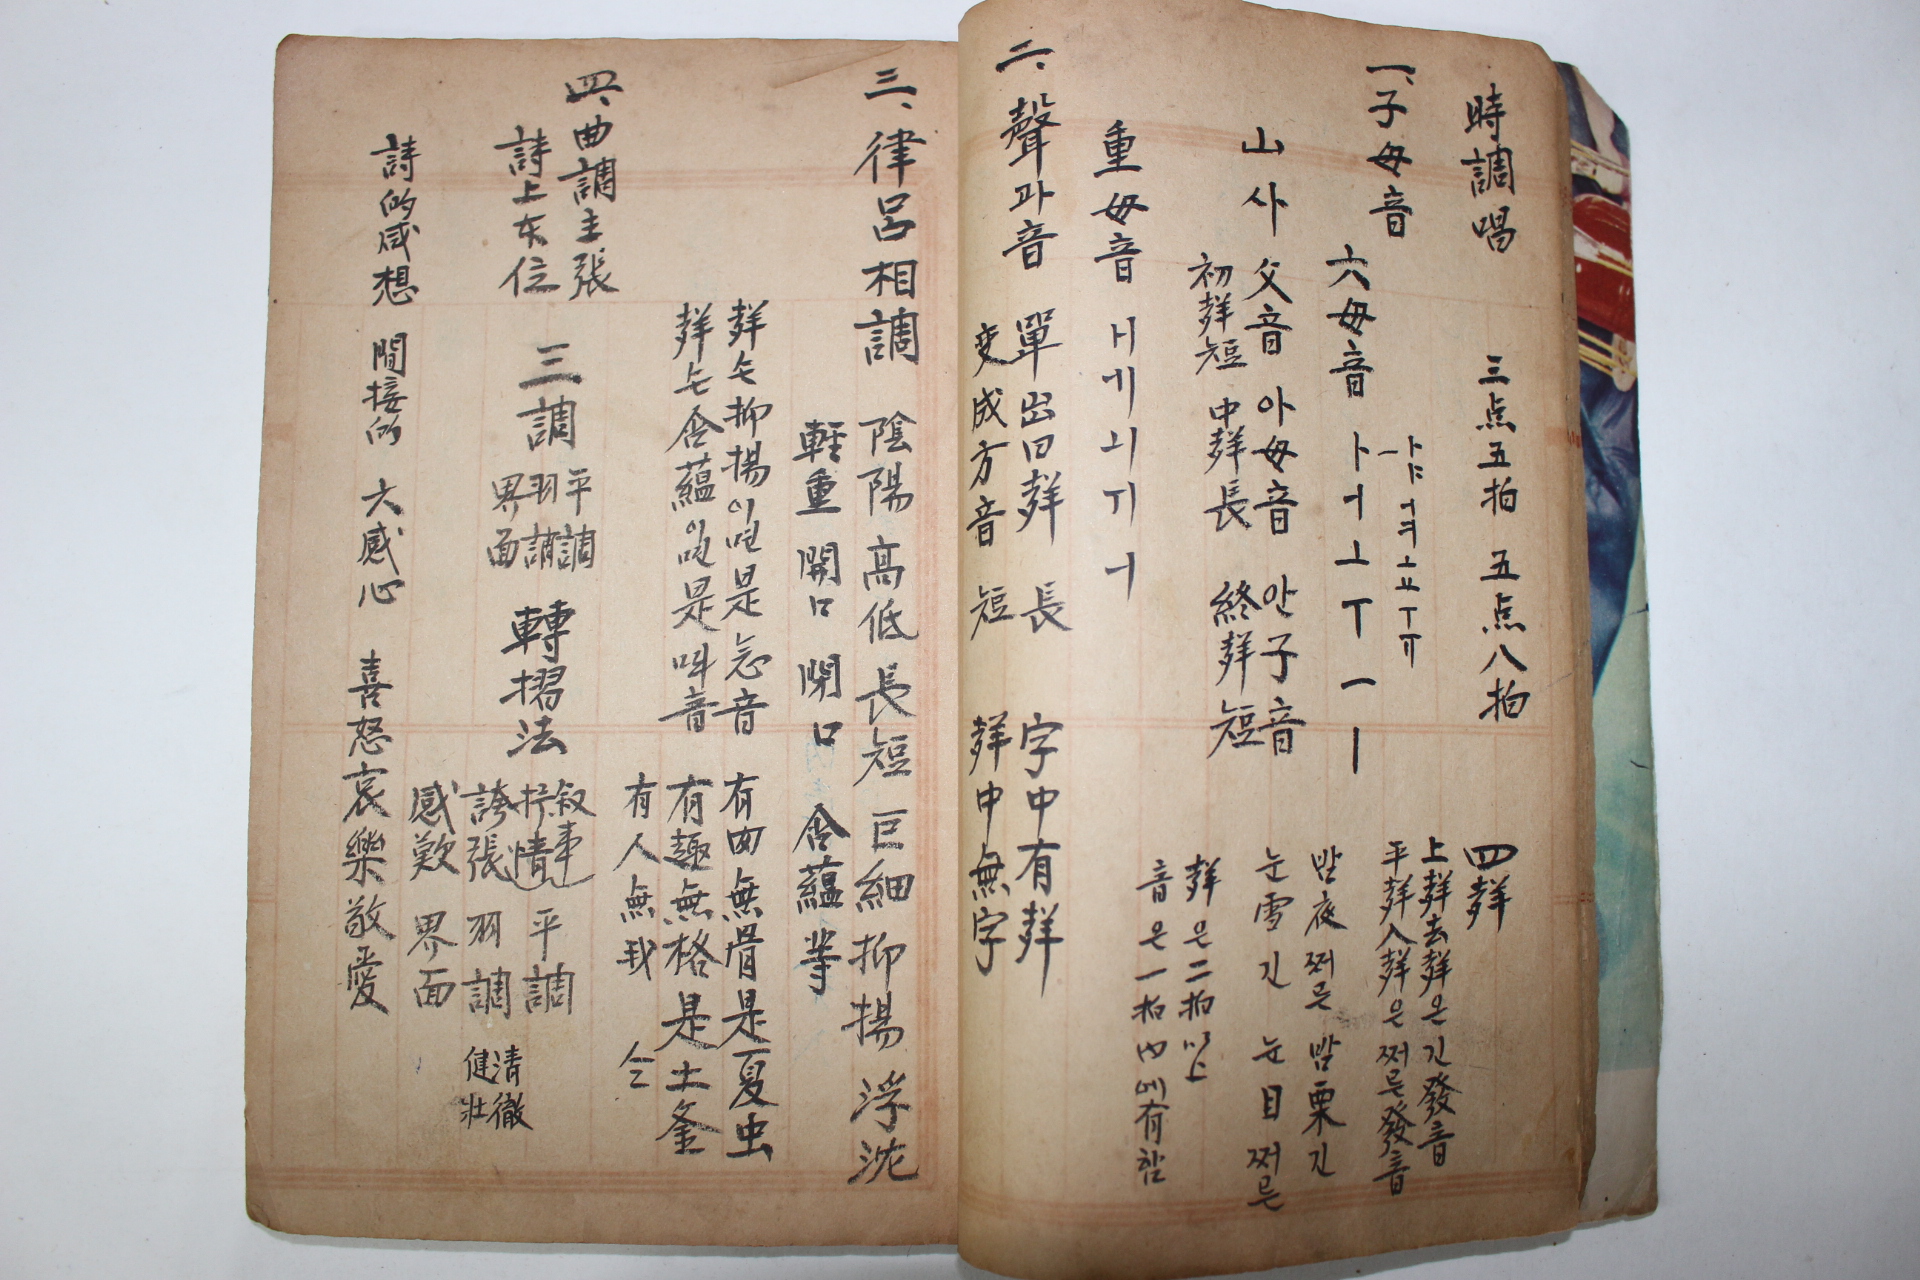 時調唱 三点五拍 五点八拍
四聲
上聲去聲은긴發音
平聲入聲은쩌른發音
一、子母音
六母音 ㅏㅓㅗㅜㅡㅣ
밤夜쩌른 밤栗긴
눈雪긴 눈目쩌른
山 사 父音 아母音 안子音
初聲短 中聲長 終聲短
聲은二拍以上
音은一拍內에有함
重母音 ㅐㅔㅚㅟㅢ
二、聲과音 單出曰聲 長 字中有聲
变成方音 短 聲中無字
三、律呂相調 陰陽 高低 長短 巨細 抑揚 浮沈
輕重 開口 閉口 含蘊等
有曲無骨是夏虫
有趣無格是土釜
有人無我
四、曲調主張
詩上本位 三調
平調
羽調
界面
轉摺法
叙事 平調
抒情
誇張 羽調
感歎 界面
清徹
健壯
詩的感想 間接的 大感心 喜怒哀樂敬愛